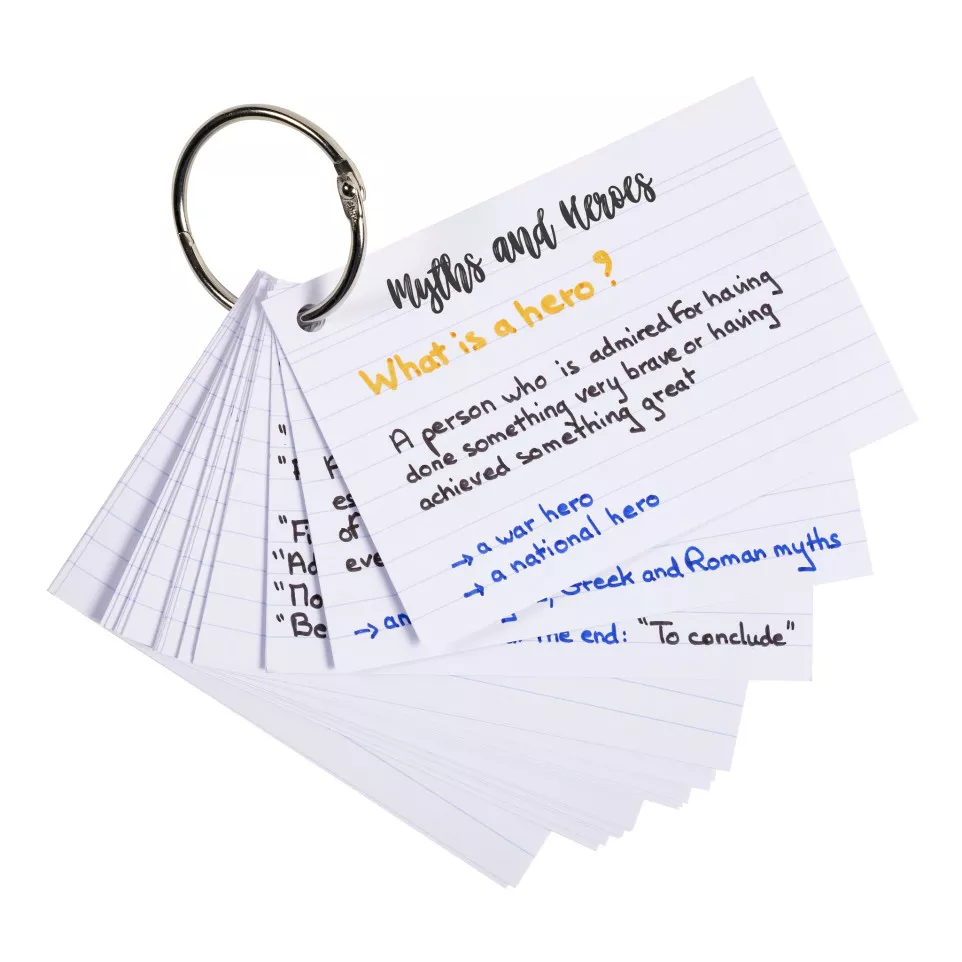 Myths and Heroes
What is a hero?
A person who is admired for having
done something very brave or having
achieved something great
→ a war hero
→ a national hero
es
of
eve
→ an
Greek and Roman myths
"
"
"Fi
"Ad
"No
"Be
the end: "To conclude"